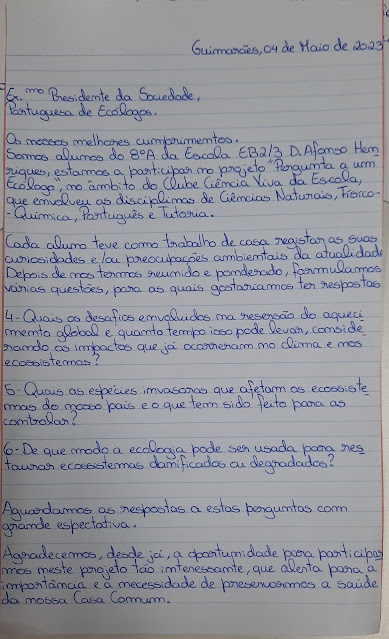 Guimarães, 04 de Maio de 2023
Ex.mo Presidente da Sociedade,
Portuguesa de Ecólogos.
Os nossos melhores cumprimentos.
Somos alunos do 8ºA da Escola EB2/3 D. Afonso Hen
riques, estamos a participar no projeto "Pergunta a um
Ecólogo", no âmbito do Clube Ciência Viva da Escola,
que envolveu as disciplinas de Ciências Naturais, Físico-
-Química, Português e Tutoria.
Cada aluno teve como trabalho de casa registar as suas
curiosidades e/ou preocupações ambientais da atualidade
Depois de nos termos reunido e ponderado, formulamos
várias questões, para as quais gostaríamos ter respostas
4-Quais os desafios envolvidos na reversão do aqueci
mento global e quanto tempo isso pode levar, conside
rando os impactos que já ocorreram no clima e nos
ecossistemas?
5-Quais as espécies invasoras que afetam os ecossiste
mas do nosso país e o que tem sido feito para as
controlar?
6-De que modo a ecologia pode ser usada para res
taurar ecossistemas danificados ou degradados?
Aguardamos as respostas a estas perguntas com
grande espectativa.
Agradecemos, desde já, a oportunidade para participar
mos neste projeto tão interessante, que alenta para a
importância e a necessidade de preservarmos a saúde
da nossa Casa Comum.